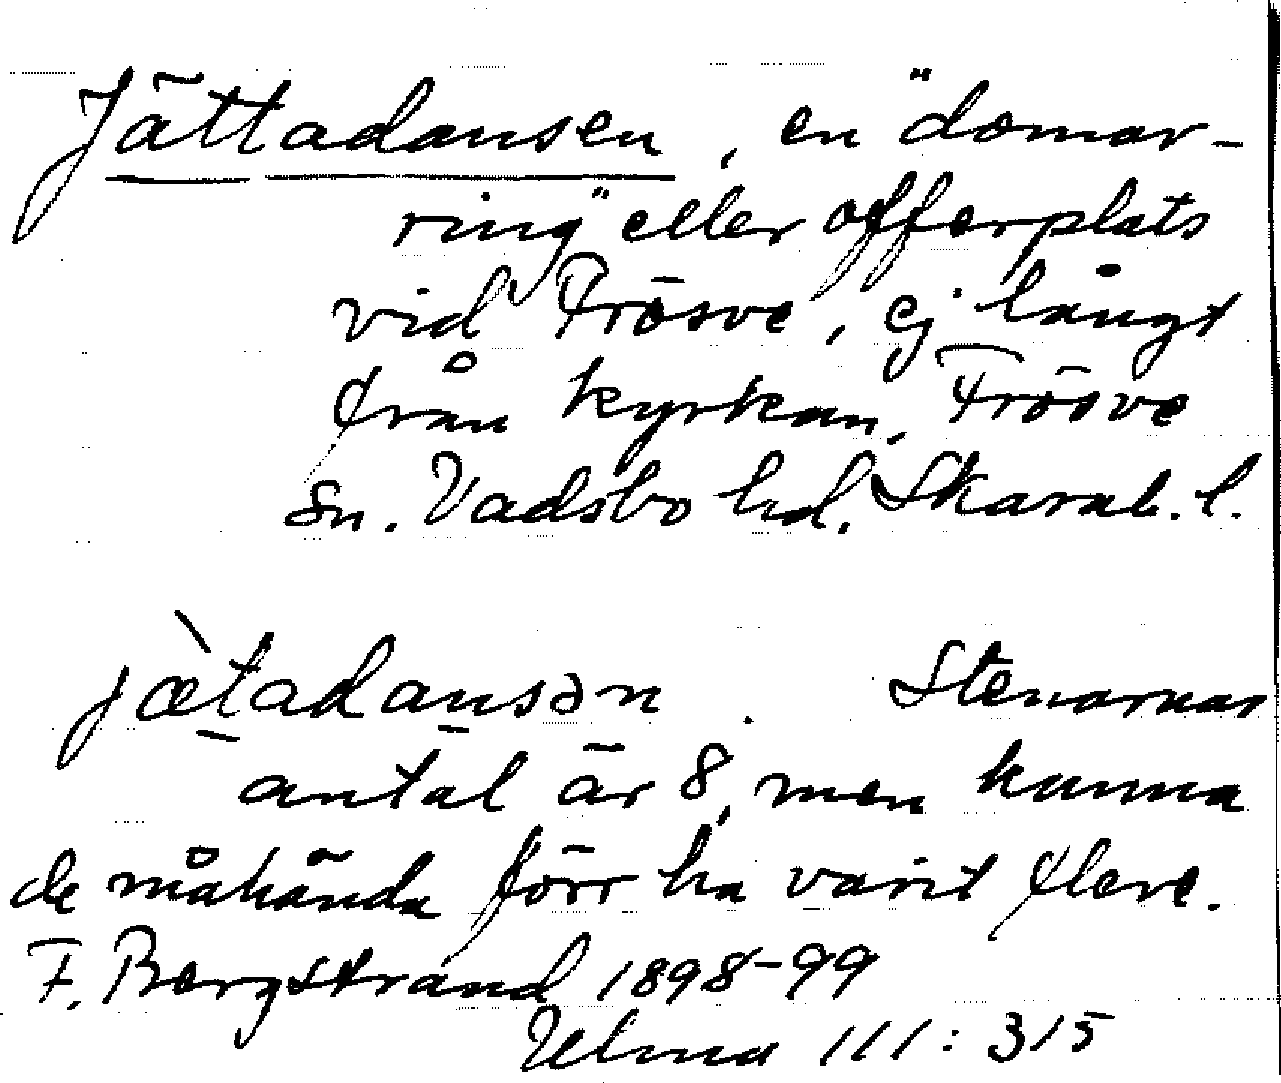 Jättadansen, en "domar-
ring" eller offerplats
vid Frösve, ej långt
från kyrkan, Frösve
sn. Vadsbo hd. Skarab. l.
jæ̀tadansən. Stenarnas
antal är 8, men kunna
de måhända förr ha varit flere.
F. Bergstrand 1898-99
Ulma 111:315